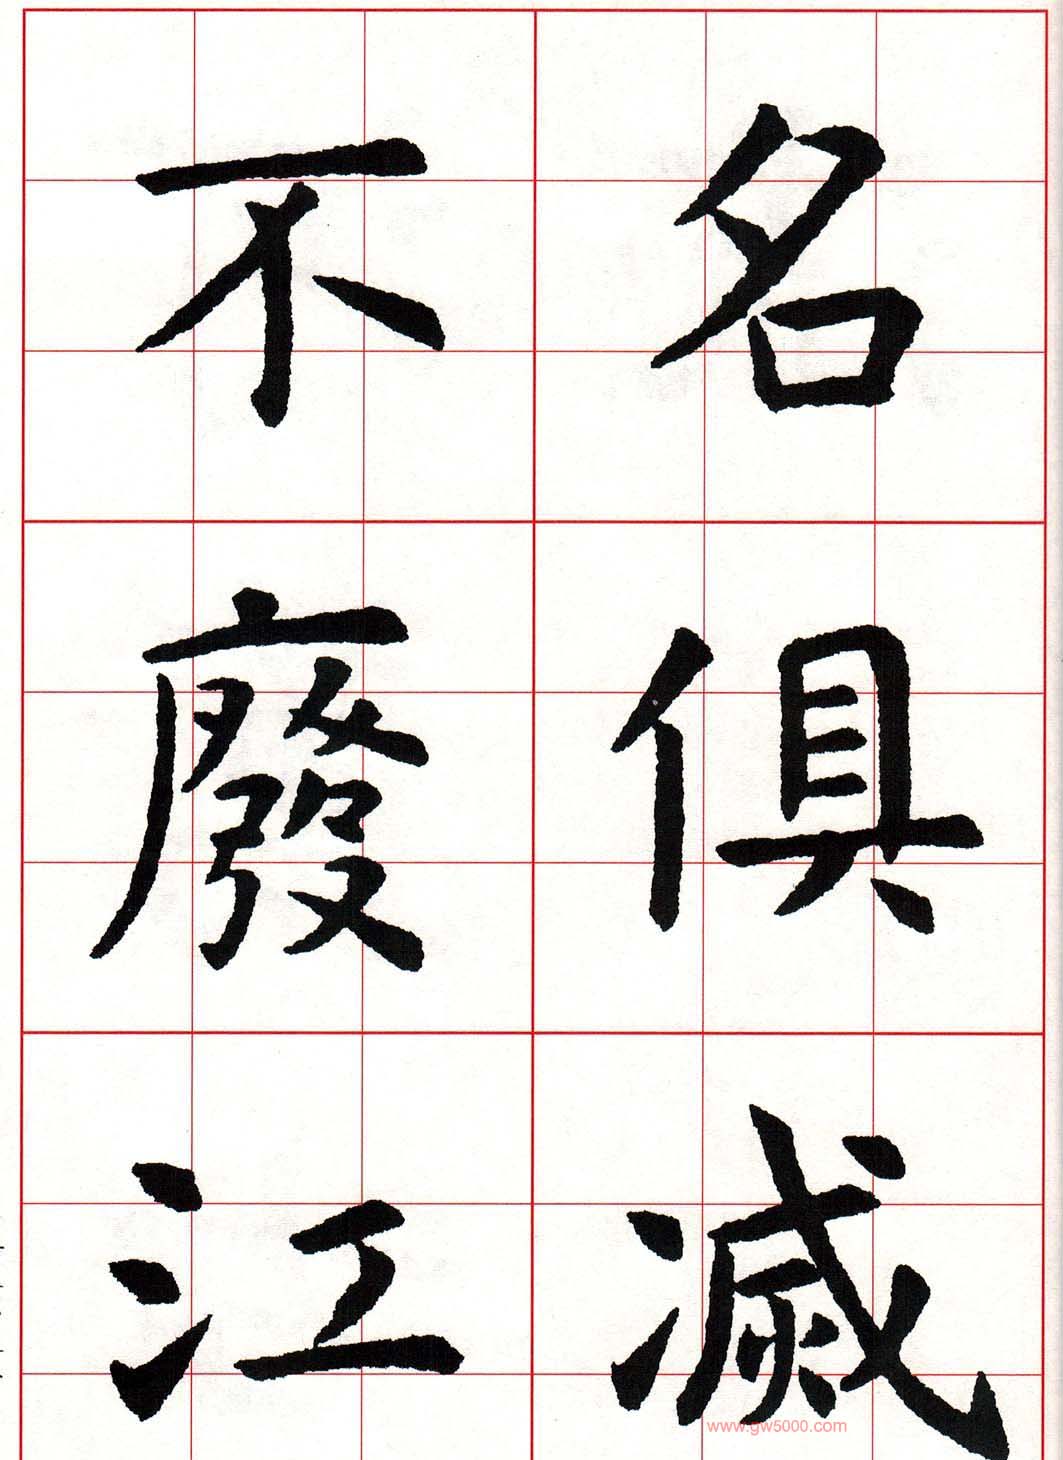 名俱滅
不廢江
www.gw5000.com